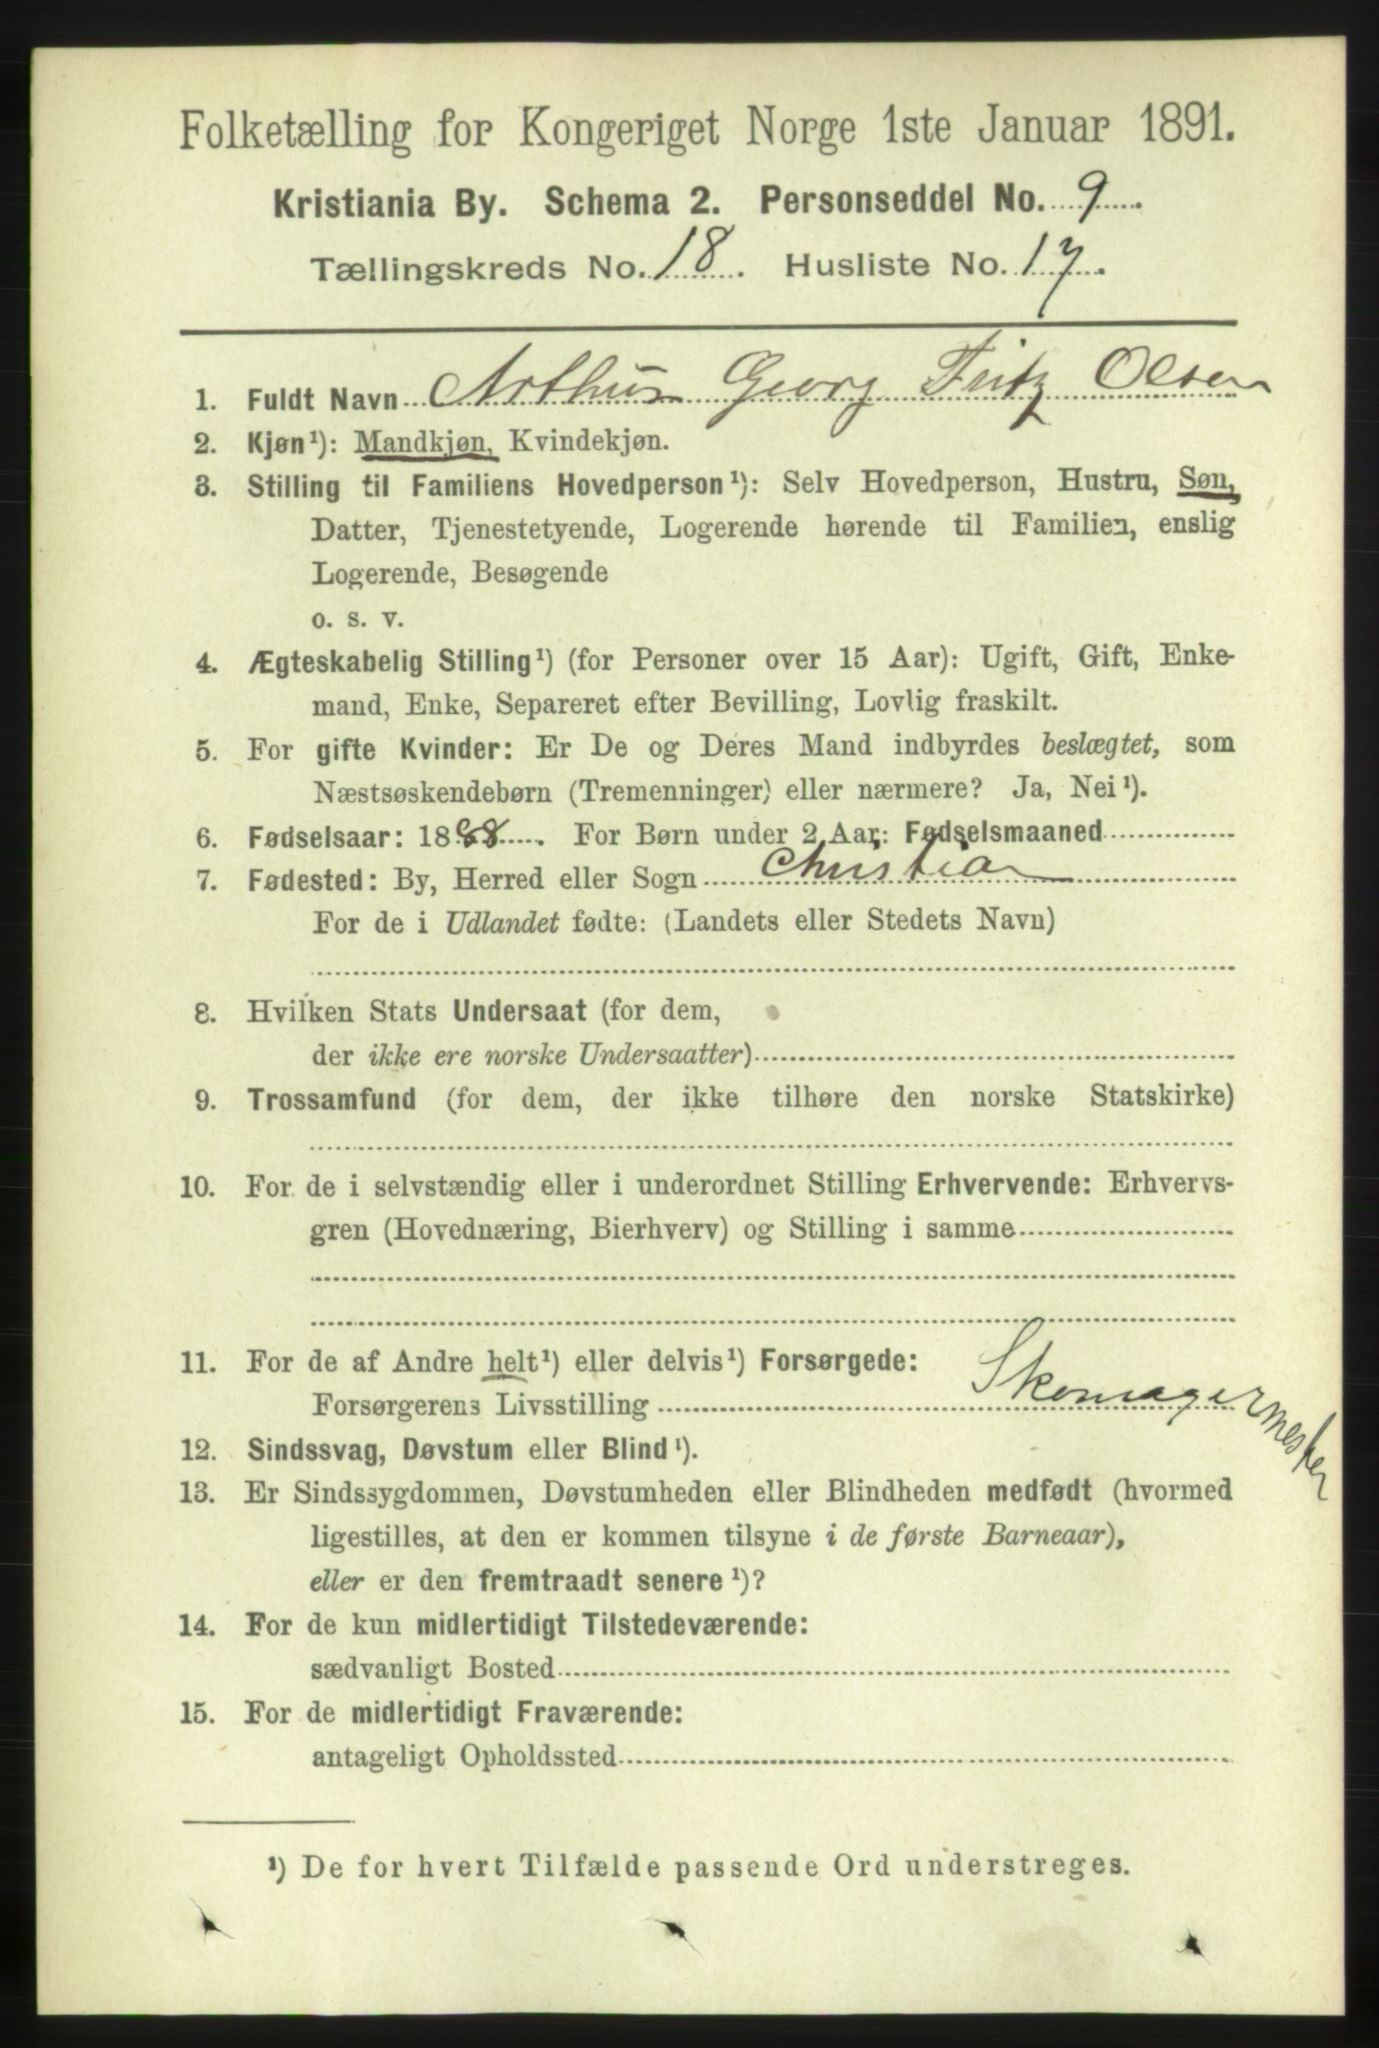 Folketælling for Kongeriget Norge 1ste Januar 1891.
Kristiania By. Schema 2. Personseddel No. 9.
Tællingskreds No. 18. Husliste No. 17.
1. Fuldt Navn Arthur Georg Fritz Olsen
2. Kjøn¹): Mandkjøn, Kvindekjøn.
3. Stilling til Familiens Hovedperson¹): Selv Hovedperson, Hustru, Søn,
Datter, Tjenestetyende, Logerende hørende til Familien, enslig
Logerende, Besøgende
o. s. v.
4. Ægteskabelig Stilling¹) (for Personer over 15 Aar): Ugift, Gift, Enke-
mand, Enke, Separeret efter Bevilling, Lovlig fraskilt.
5. For gifte Kvinder: Er De og Deres Mand indbyrdes beslægtet, som
Næstsøskendebørn (Tremenninger) eller nærmere? Ja, Nei¹).
6. Fødselsaar: 1888. For Børn under 2 Aar: Fødselsmaaned
7. Fødested: By, Herred eller Sogn Christia
For de i Udlandet fødte: (Landets eller Stedets Navn)
8. Hvilken Stats Undersaat (for dem,
der ikke ere norske Undersaatter)
9. Trossamfund (for dem, der ikke tilhøre den norske Statskirke)
10. For de i selvstændig eller i underordnet Stilling Erhvervende: Erhvervs-
gren (Hovednæring, Bierhverv) og Stilling i samme
11. For de af Andre helt¹) eller delvis¹) Forsørgede:
Forsørgerens Livsstilling Skomagermester
12. Sindssvag, Døvstum eller Blind¹).
13. Er Sindssygdommen, Døvstumheden eller Blindheden medfødt (hvormed
ligestilles, at den er kommen tilsyne i de første Barneaar),
eller er den fremtraadt senere¹)?
14. For de kun midlertidigt Tilstedeværende:
sædvanligt Bosted
15. For de midlertidigt Fraværende:
antageligt Opholdssted
¹) De for hvert Tilfælde passende Ord understreges.